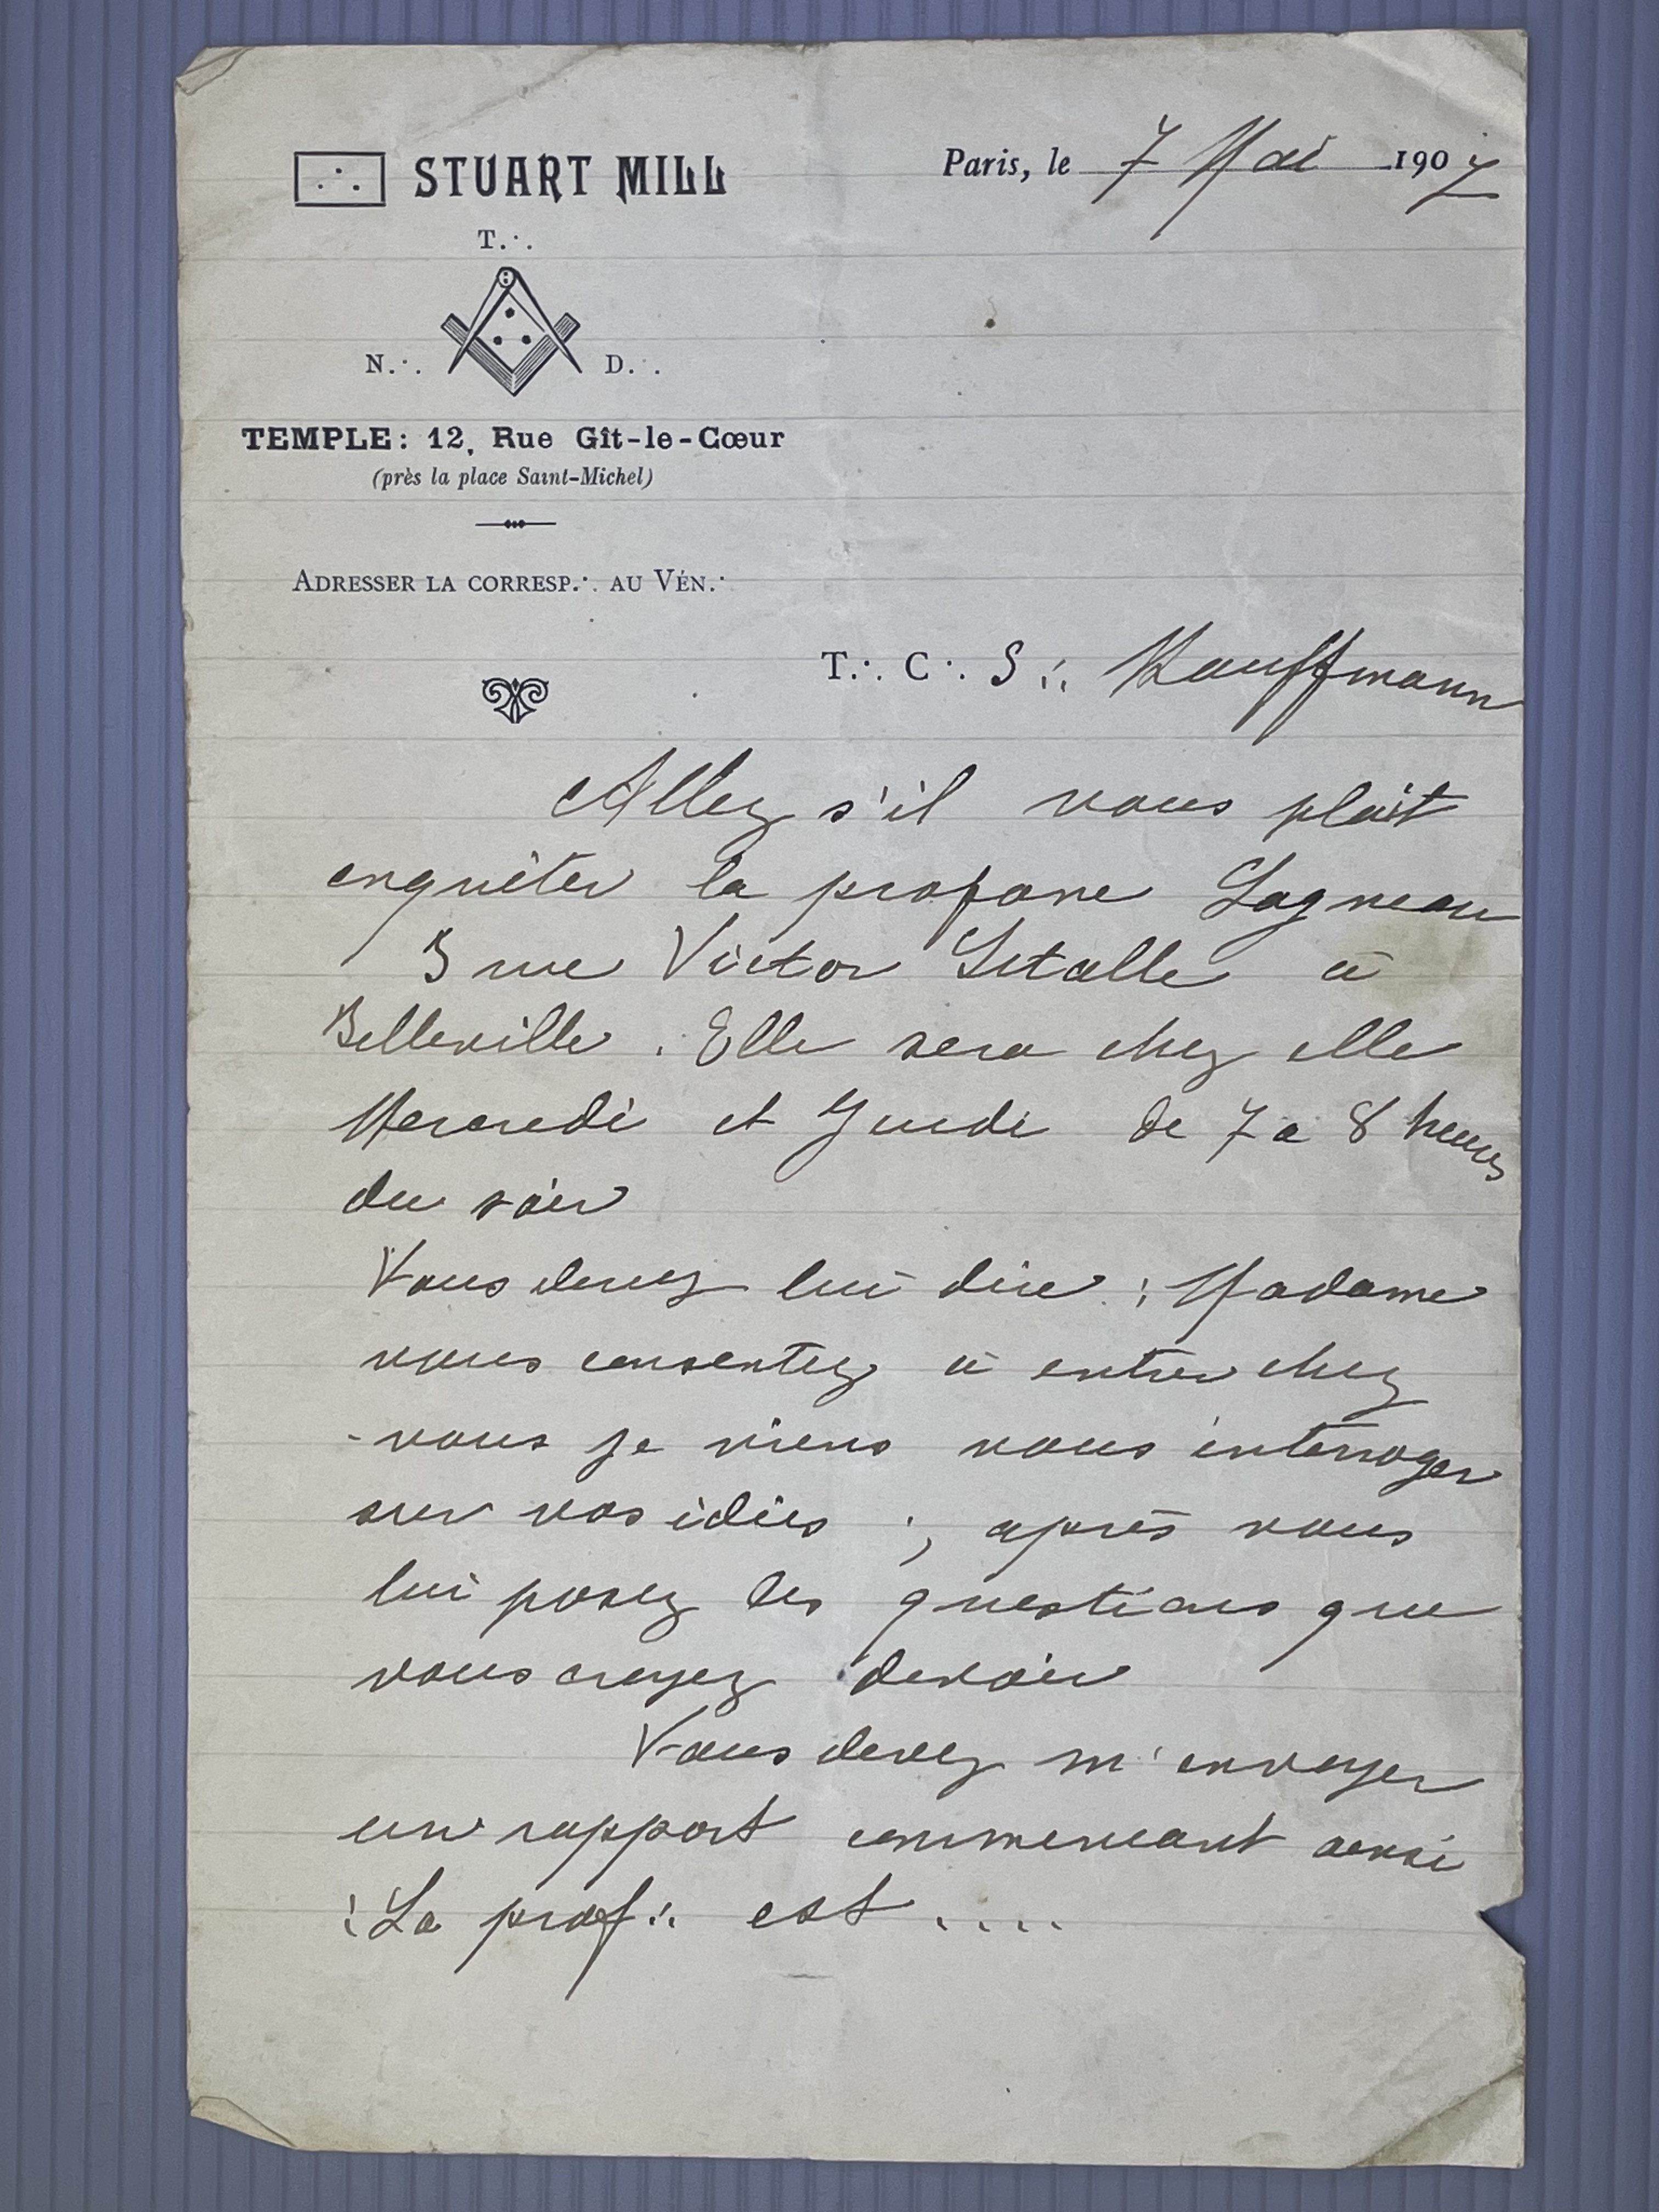 ∴ STUART MILL
Paris, le 7 Mai 1907
T∴
N∴ D∴
TEMPLE: 12, Rue Gît-le-Cœur
(près la place Saint-Michel)
ADRESSER LA CORRESP∴ AU VÉN∴
T∴ C∴ S∴ Kauffmann
Allez s'il vous plait
enquêter la profane Lagneau
3 rue Victor Letalle à
Belleville. Elle sera chez elle
Mercredi et Jeudi de 7 a 8 heures
du soir
Vous devez lui dire : Madame
vous consentez à entrer chez
vous je viens vous interroger
sur vos idées ; après vous
lui posez les questions que
vous croyez devoir
Vous devez m'envoyer
un rapport commencant ainsi
: La prof∴ est ....